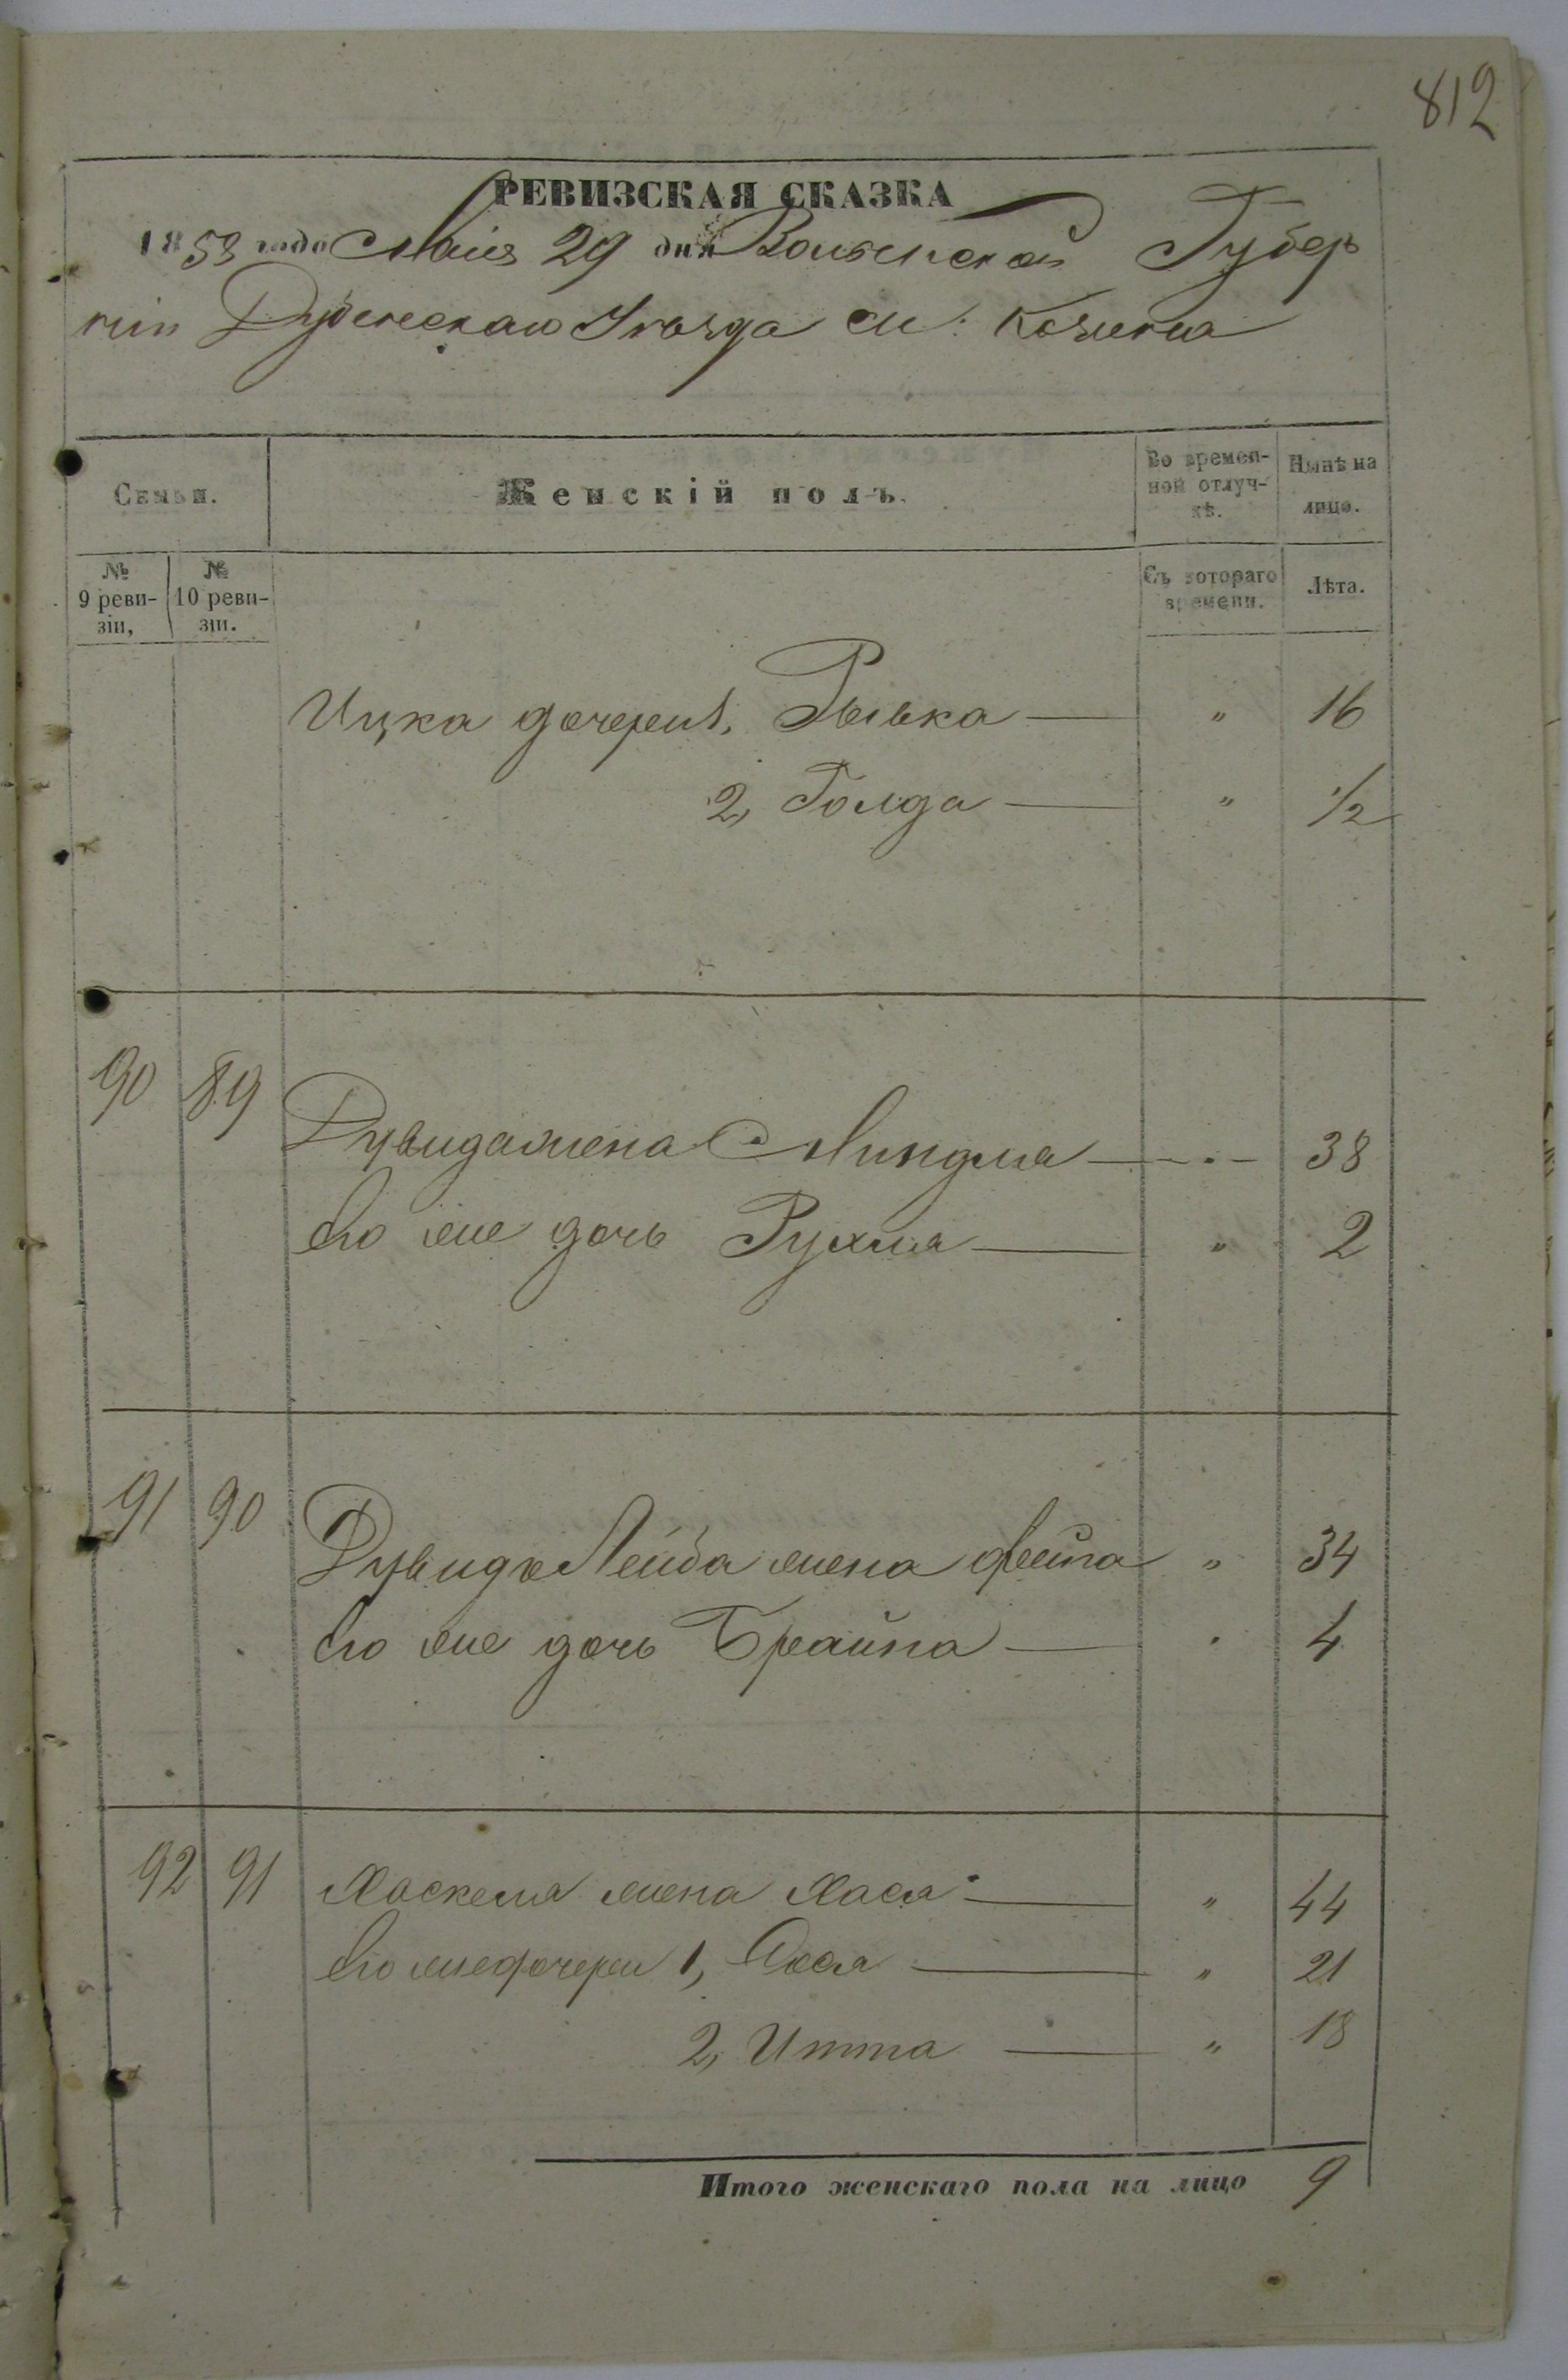 812
РЕВИЗСКАЯ СКАЗКА
1858 года Маія 29 дня Волынской Губер
ніи Дубенскаго Уѣзда м: Козина
Семьи.
Женскій полъ.
Во времен-
ной отлуч-
кѣ.
Нынѣ на
лицо.
№
9 реви-
зіи,
№
10 реви-
зіи.
Съ котораго
времени.
Лѣта.
Ицка дочери 1, Рывка — " 16
2, Голда — " 1/2
90 89
Дувида жена Миндля — " — 38
Его же дочь Рухля — " 2
91 90
Дувидъ Лейба жена Фейга " 34
Его же дочь Брайна — " 4
92 91 Хаскеля жена Хася — " 44
Его же дочери 1, — " 21
2, Итта — " 18
Итого женскаго пола на лицо 9